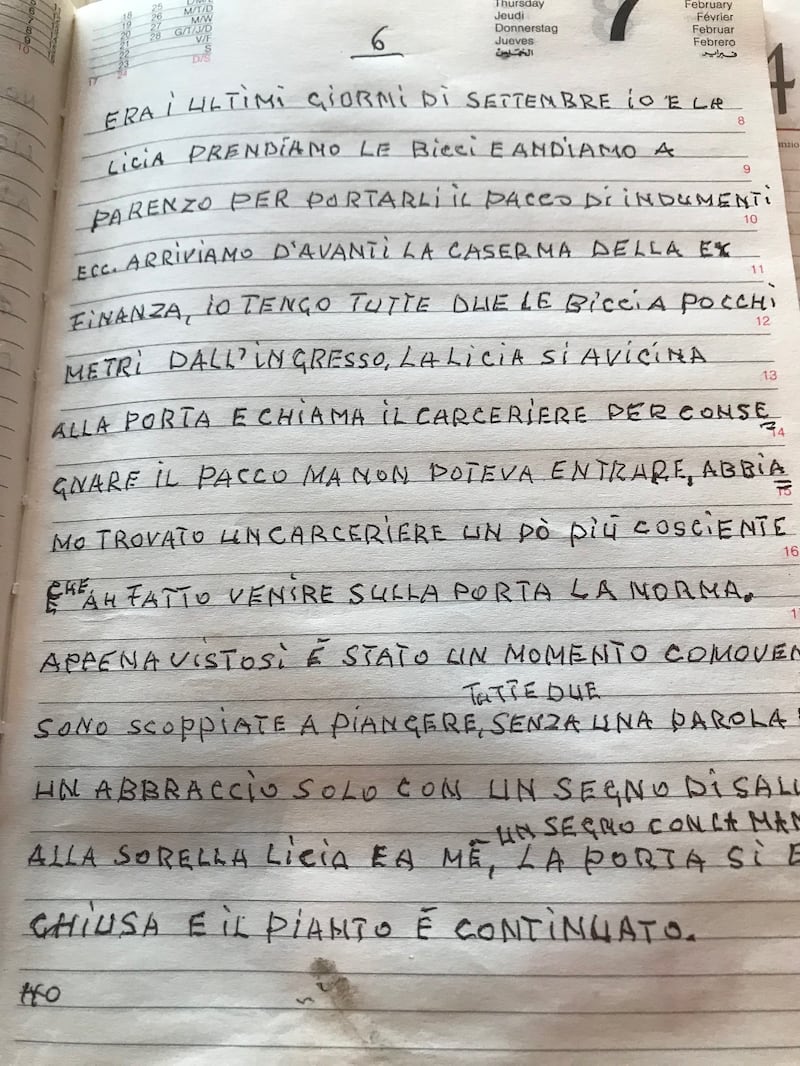 25 M/T/D
18 26 M/W
19 27 G/T/J/D
20 28 V/F
21 S
22 D/S
23
17 24
Thursday
Jeudi
Donnerstag
Jueves
الخميس
7
February
Février
Februar
Febrero
فبراير
4
6
ERA I ULTIMI GIORMI DI SETTEMBRE IO E LA
8
LICIA PRENDIAMO LE BICCI E ANDIAMO A
9
PARENZO PER PORTARLI IL PACCO DI INDUMENTI
10
ECC. ARRIVIAMO D'AVANTI LA CASERMA DELLA EX
11
FINANZA, IO TENGO TUTTE DUE LE BICCI A POCCHI
12
METRI DALL'INGRESSO, LA LICIA SI AVICINA
13
ALLA PORTA E CHIAMA IL CARCERIERE PER CONSE
14
GNARE IL PACCO MA NON POTEVA ENTRARE, ABBIA
15
MO TROVATO UN CARCERIERE UN PÒ PIÙ COSCIENTE
16
CHE
E AH FATTO VENIRE SULLA PORTA LA NORMA.
1
APPENA VISTOSI È STATO UN MOMENTO COMOVEN
TUTTE DUE
SONO SCOPPIATE A PIANGERE, SENZA UNA PAROLA
UN ABBRACCIO SOLO CON UN SEGNO DI SALU
UN SEGNO CON LA MAN
ALLA SORELLA LICIA E A MÈ, LA PORTA SI E
CHIUSA E IL PIANTO È CONTINUATO.